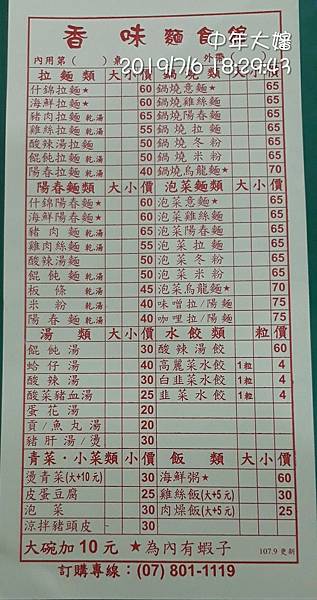 香味麵食館
中年大嬸
2019/7/6 18:29:43
內用第（　）桌
拉麵類 大 小 價
什錦拉麵★ 60
海鮮拉麵★ 60
豬肉拉麵 乾.湯 60
雞絲拉麵 乾.湯 55
酸辣湯拉麵 50
餛飩拉麵 乾.湯 50
陽春拉麵 乾.湯 40
鍋燒意麵★ 65
鍋燒雞絲麵 65
鍋燒陽春麵 65
鍋燒拉麵 65
鍋燒冬粉 65
鍋燒米粉 65
鍋燒烏龍麵★ 70
陽春麵類 大 小 價
什錦陽春麵★ 60
海鮮陽春麵★ 60
豬肉麵 乾.湯 60
雞肉絲麵 乾.湯 55
酸辣湯麵 50
餛飩麵 乾.湯 50
板條 乾.湯 45
米粉 乾.湯 40
陽春麵 乾.湯 40
泡菜麵類 大 小 價
泡菜意麵★ 65
泡菜雞絲麵 65
泡菜陽春麵 65
泡菜拉麵 65
泡菜冬粉 65
泡菜米粉 65
泡菜烏龍麵★ 70
味噌拉/陽麵 75
咖哩拉/陽麵 75
湯類 大 小 價
餛飩湯 30
蛤仔湯 40
酸辣湯 30
酸菜豬血湯 25
蛋花湯 20
貢/魚丸湯 20
豬肝湯/燙 30
水餃類 粒 價
酸辣湯餃 60
高麗菜水餃 1粒 4
白韭菜水餃 1粒 4
韭菜水餃 1粒 4
青菜·小菜類 小 價
燙青菜(大+10元) 30
皮蛋豆腐 25
泡菜 25
涼拌豬頭皮 30
飯類 大 小 價
海鮮粥★ 60
雞絲飯(大+5元) 30
肉燥飯(大+5元) 25
大碗加10元 ★為內有蝦子 107.9 更新
訂購專線：(07) 801-1119